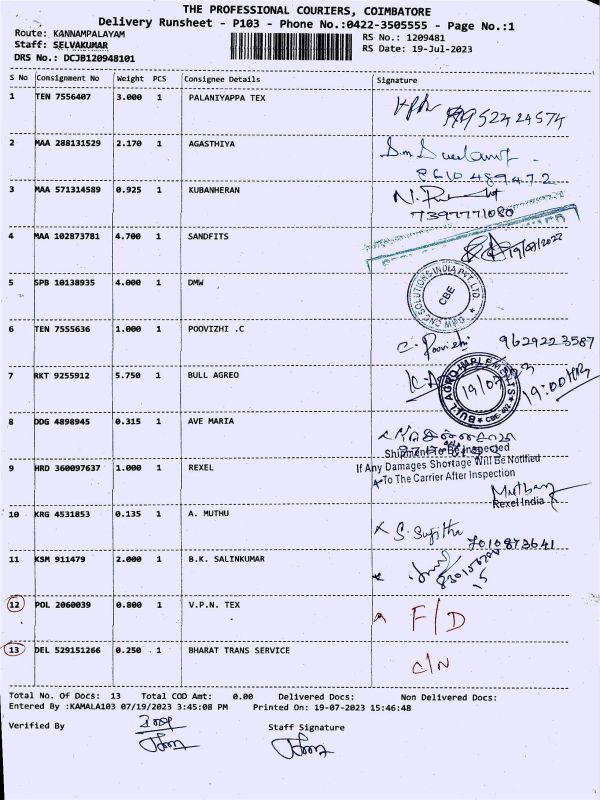 THE PROFESSIONAL COURIERS, COIMBATORE
Delivery Runsheet - P103 - Phone No.:0422-3505555 - Page No.:1
Route: KANNAMPALAYAM
RS No.: 1209481
Staff: SELVAKUMAR
RS Date: 19-Jul-2023
DRS No.: DCJB120948101
S No Consignment No Weight PCS Consignee Details Signature
1 TEN 7556407 3.000 1 PALANIYAPPA TEX
2 MAA 288131529 2.170 1 AGASTHIYA
8610489472
3 MAA 571314589 0.925 1 KUBANHERAN
7397771080
4 MAA 102873781 4.700 1 SANDFITS
19/07/2022
5 SPB 10138935 4.000 1 DMW
DMW CNC SOLUTIONS INDIA PVT LTD.
CBE
6 TEN 7555636 1.000 1 POOVIZHI .C
C. Poovizhi 9629223587
7 RKT 9255912 5.750 1 BULL AGREO
BULL AGRO IMPLEMENTS
CBE-402
19:00HR
8 DDG 4898945 0.315 1 AVE MARIA
Shipment To Be Inspected
If Any Damages Shortage Will Be Notified
To The Carrier After Inspection
9 HRD 360097637 1.000 1 REXEL
Rexel India
10 KRG 4531853 0.135 1 A. MUTHU
S. Sujitha
7010873641
11 KSM 911479 2.000 1 B.K. SALINKUMAR
12 POL 2060039 0.800 1 V.P.N. TEX
F/D
13 DEL 529151266 0.250 1 BHARAT TRANS SERVICE
C/N
Total No. Of Docs: 13 Total COD Amt: 0.00 Delivered Docs: Non Delivered Docs:
Entered By :KAMALA103 07/19/2023 3:45:08 PM Printed On: 19-07-2023 15:46:48
Verified By Staff Signature